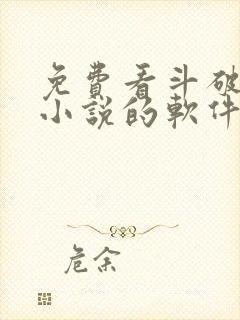 免費看斗破
小說的軟件
危余